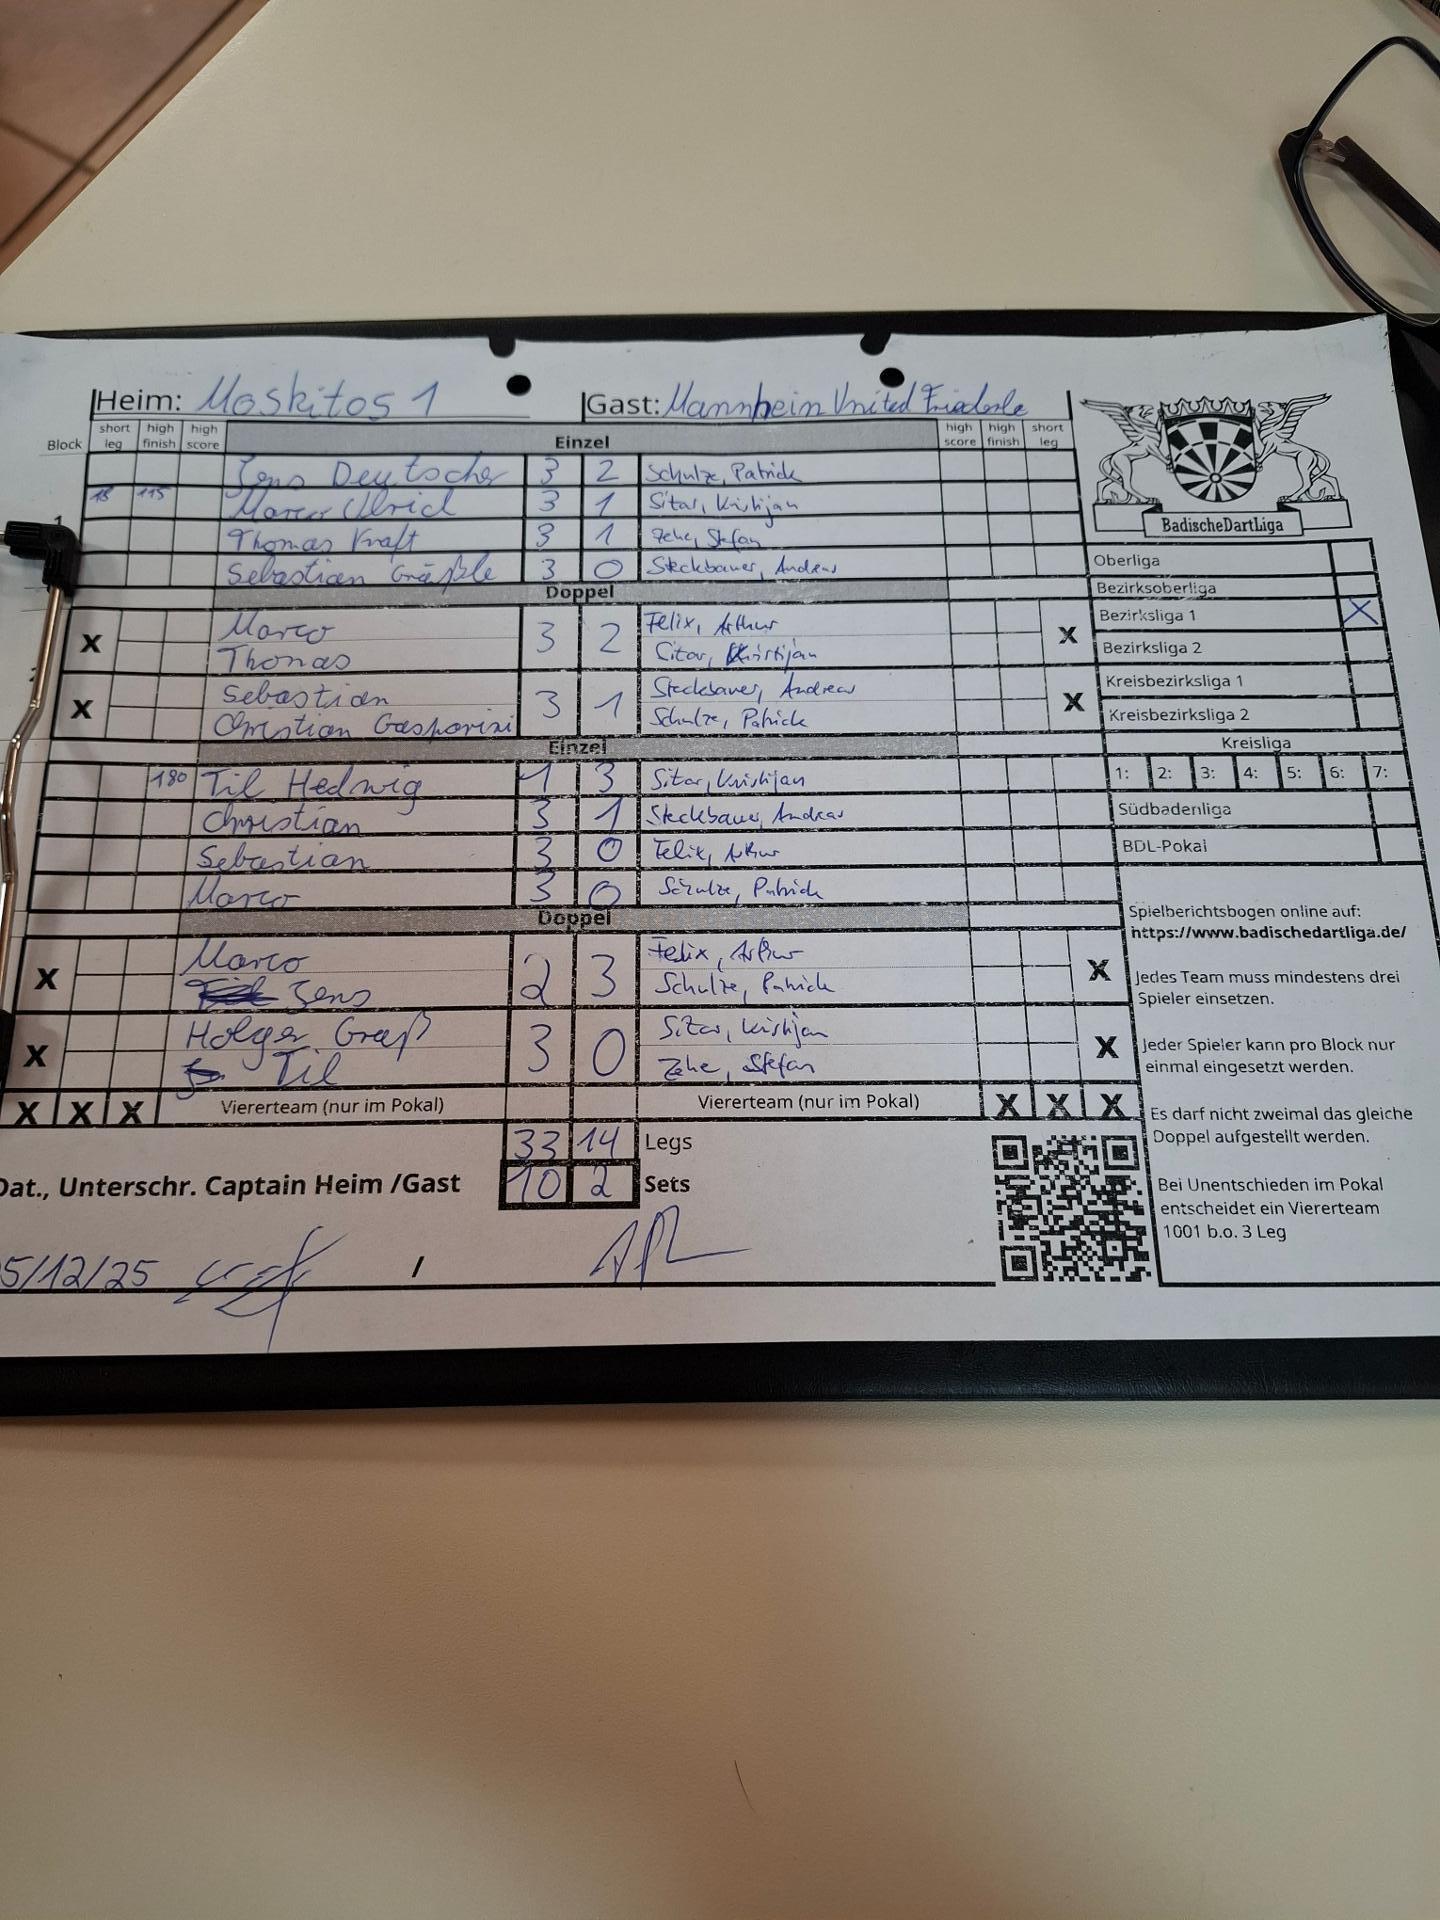 Heim: Moskitos 1 Gast: Mannhein United Friederle
Block short leg high finish high score Einzel high score high finish short leg
Jens Deutscher 3 2 Schulze, Patrick
1 18 115 Marco Ulrich 3 1 Sitar, Kristijan
Thomas Kraft 3 1 Zehe, Stefan
Sebastian Gräßle 3 0 Steckbauer, Andreas
Doppel
X Marco 3 2 Felix, Arthur X
Thomas Sitar, Kristijan
X Sebastian 3 1 Steckbauer, Andreas X
Christian Gasparini Schulze, Patrick
Einzel
180 Til Hedwig 1 3 Sitar, Kristijan
Christian 3 1 Steckbauer, Andreas
Sebastian 3 0 Felix, Arthur
Marco 3 0 Schulze, Patrick
Doppel
X Marco 2 3 Felix, Arthur X
Jens Schulze, Patrick
X Holger Graß 3 0 Sitar, Kristijan X
Til Zehe, Stefan
X X X Viererteam (nur im Pokal) Viererteam (nur im Pokal) X X X
33 14 Legs
Dat., Unterschr. Captain Heim /Gast 10 2 Sets
5/12/25 /
BadischeDartLiga
Oberliga
Bezirksoberliga
Bezirksliga 1 X
Bezirksliga 2
Kreisbezirksliga 1
Kreisbezirksliga 2
Kreisliga
1: 2: 3: 4: 5: 6: 7:
Südbadenliga
BDL-Pokal
Spielberichtsbogen online auf:
https://www.badischedartliga.de/
Jedes Team muss mindestens drei
Spieler einsetzen.
Jeder Spieler kann pro Block nur
einmal eingesetzt werden.
Es darf nicht zweimal das gleiche
Doppel aufgestellt werden.
Bei Unentschieden im Pokal
entscheidet ein Viererteam
1001 b.o. 3 Leg